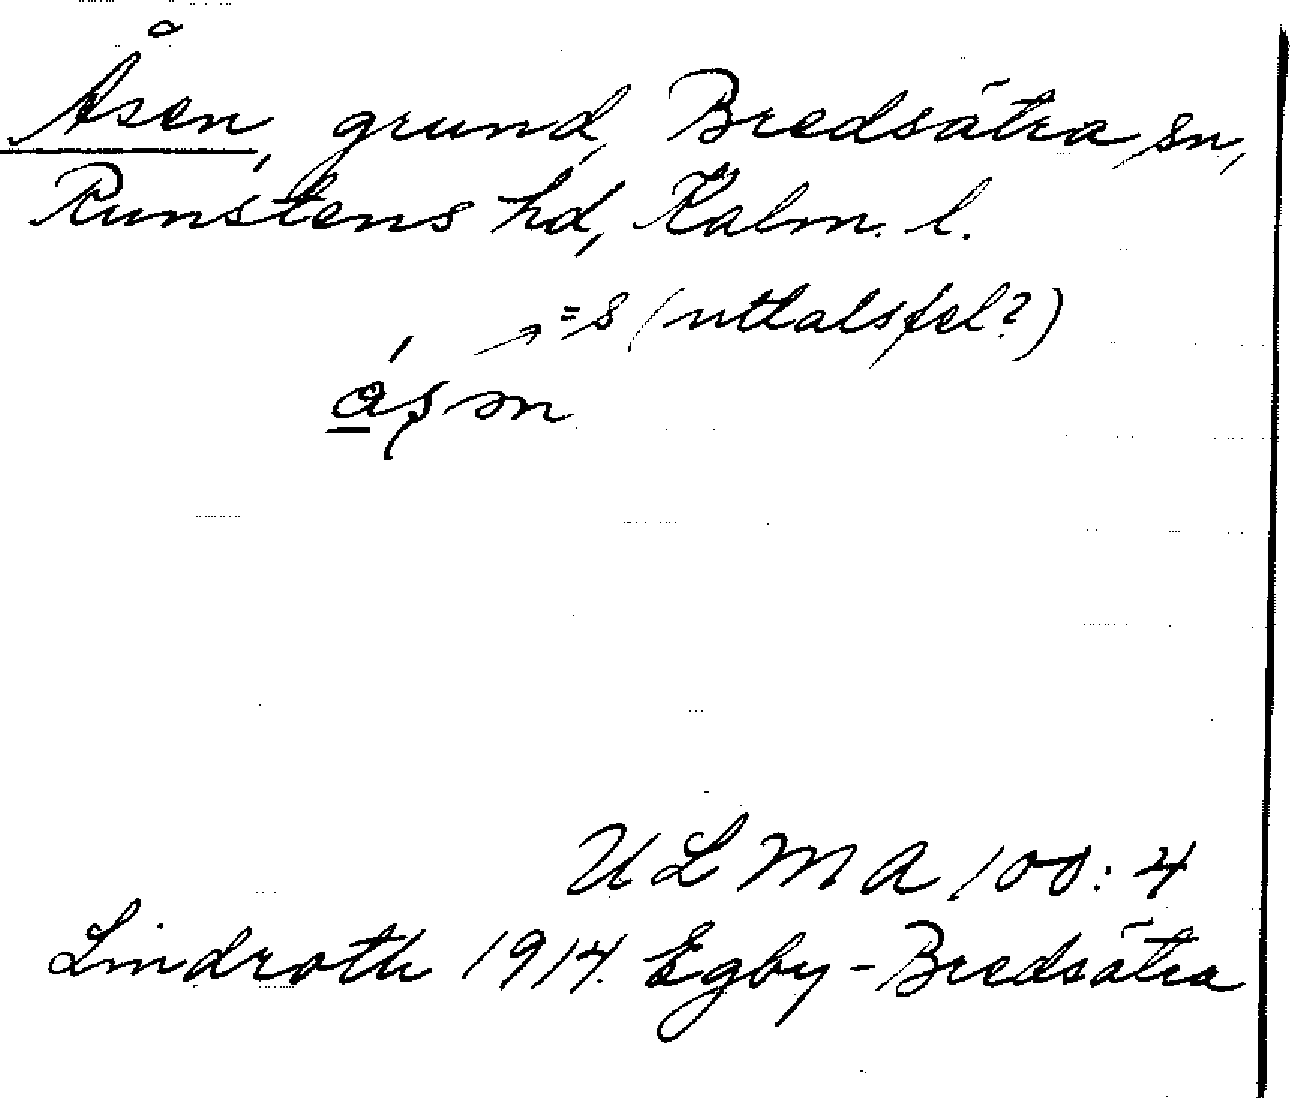 Åsen, grund, Bredsätra sn,
Runstens hd, Kalm. l.
=s (uttalsfel?)
UL MA 100:4
Lindroth 1914. Egby-Bredsätra